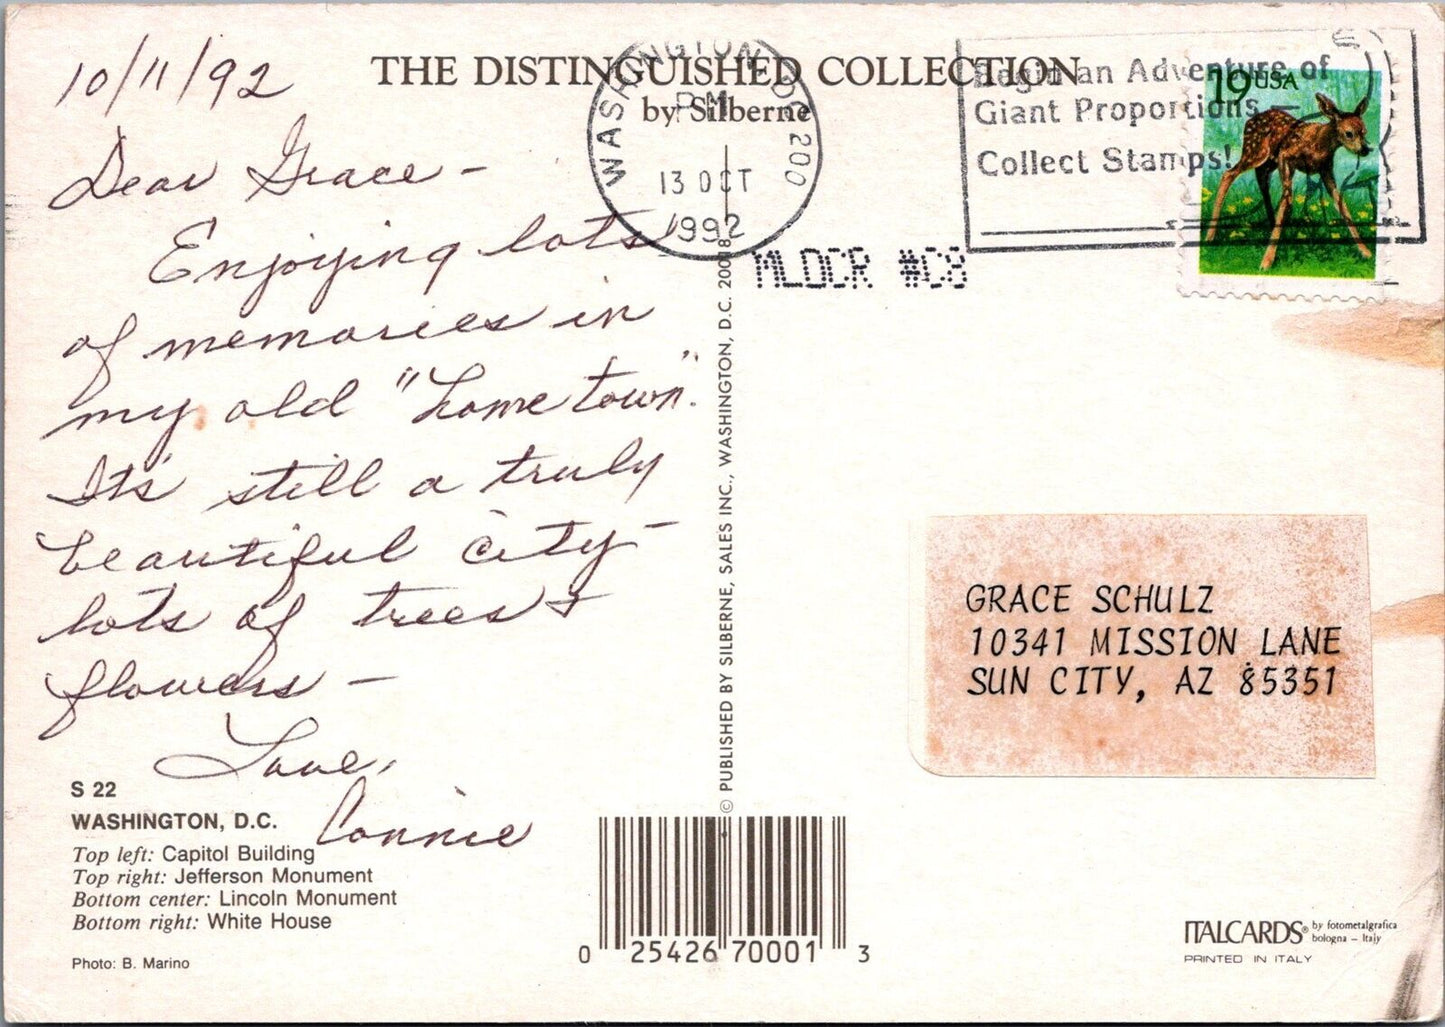 10/11/92
THE DISTINGUISHED COLLECTION
by Silberne
WASHINGTON, DC 200
PM
13 OCT
1992
Begin an Adventure of
Giant Proportions –
Collect Stamps!
19 USA
MLDCR #C8
Dear Grace –
Enjoying lots
of memories in
my old "home town".
It's still a truly
beautiful city –
lots of trees &
flowers –
Love,
Connie
© PUBLISHED BY SILBERNE, SALES INC., WASHINGTON, D.C. 20018
GRACE SCHULZ
10341 MISSION LANE
SUN CITY, AZ 85351
S 22
WASHINGTON, D.C.
Top left: Capitol Building
Top right: Jefferson Monument
Bottom center: Lincoln Monument
Bottom right: White House
Photo: B. Marino
0 25426 70001 3
ITALCARDS® by fotometalgrafica
bologna – Italy
PRINTED IN ITALY